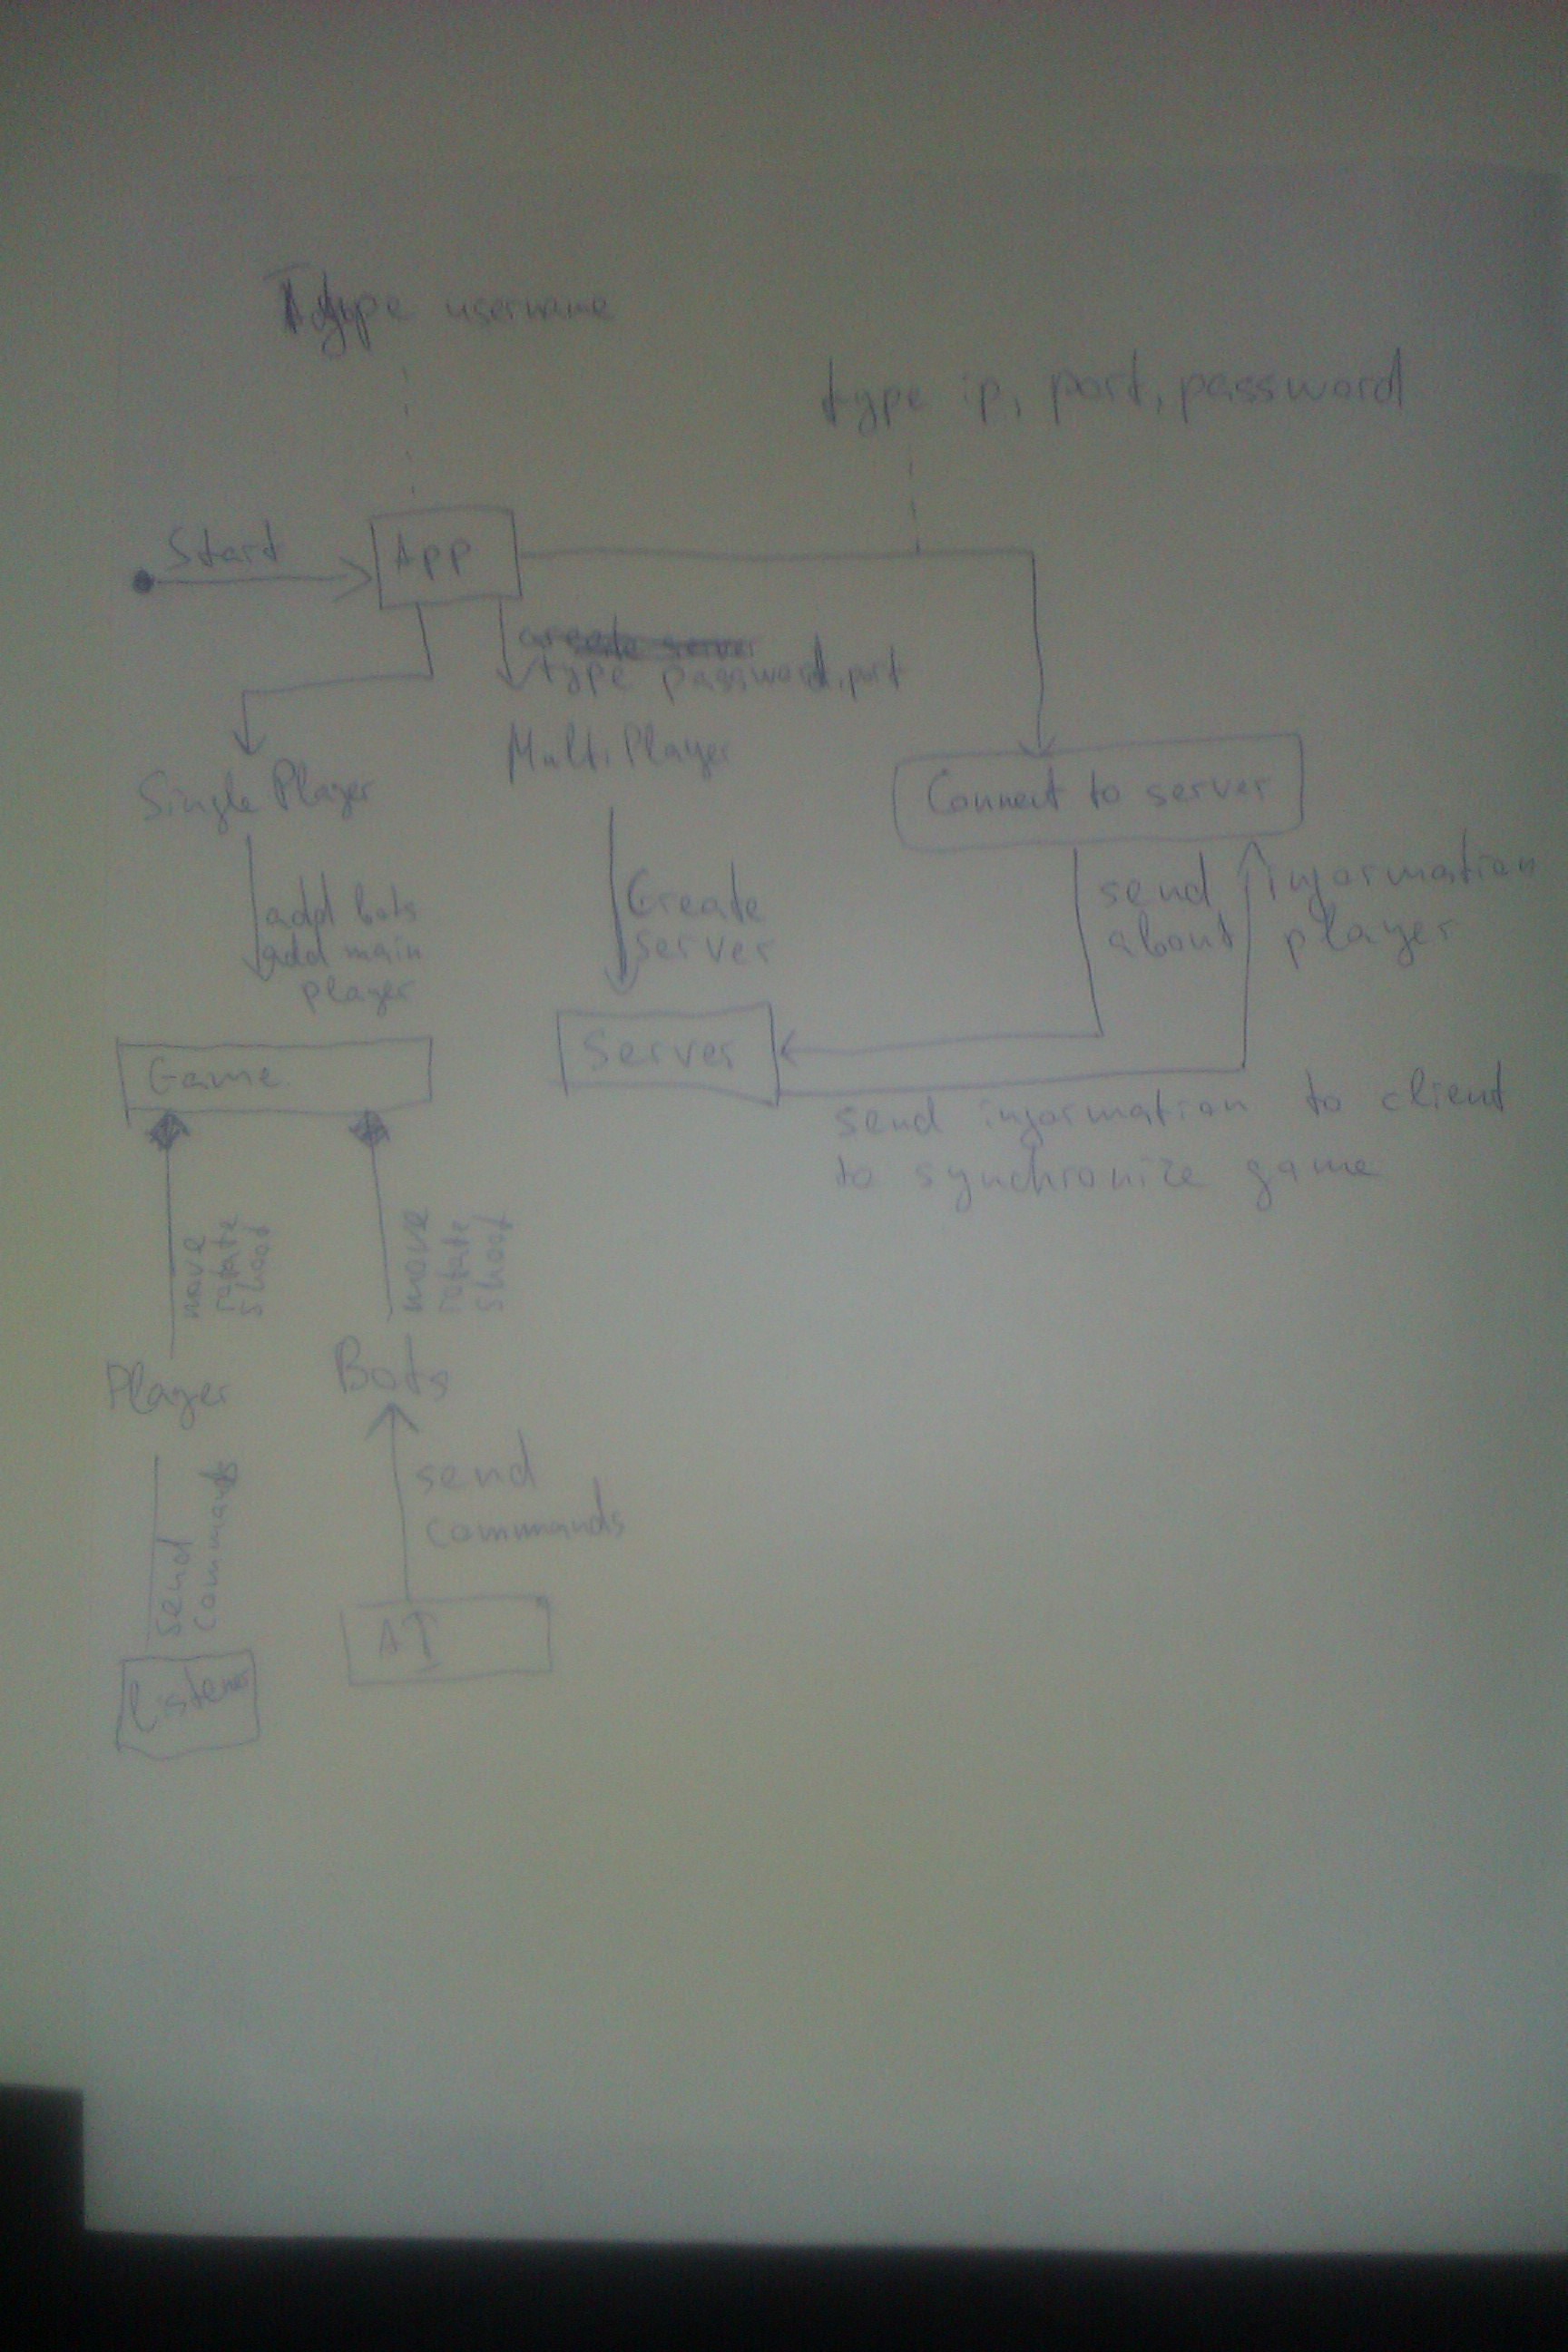 Type username
type ip, port, password
Start
App
create server
type password, port
Single Player
Multi Player
Connect to server
add bots
add main
player
Create
server
send information
about player
Game
Server
send information to client
to synchronize game
move
rotate
shoot
move
rotate
shoot
Player
Bots
send
commands
send
commands
AI